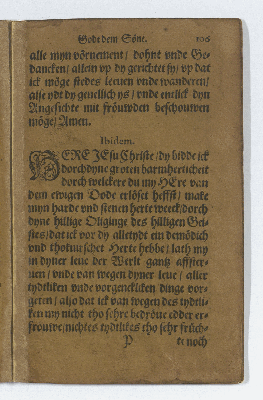 Godt dem Söne. 106
alle myn vörnement / dohnt vnde Ge-
dancken / allein vp dy gerichtet sy / vp dat
ick möge stedes leuen vnde wanderen /
alse ydt dy geuellich ys / vnde entlick dyn
Angesichte mit fröuwden beschouwen
möge / Amen.
Ibidem.
HERE JEsu Christe / dy bidde ick
dorch dyne groten barmherticheit
dorch welckere du my HEre van
dem ewigen Dode erlöset heffst / make
myn harde vnd stenen herte weeck / dorch
dyne hillige Ölginge des hilligen Gei-
stes / dat ick vor dy alletydt ein demödich
vnd thoknirschet Herte hebbe / lath my
in dyner leue der Werlt gantz affster-
uen / vnde van wegen dyner leue / aller
tydtliken vnde vorgencklicken dinge vor-
geten / also dat ick van wegen des tydtli-
ken my nicht tho sehre bedröue edder er-
frouwe / nichtes tydtlikes tho sehr früch-
P te noch